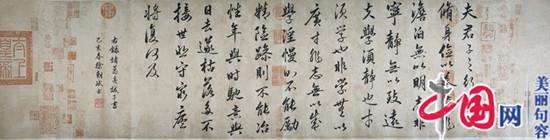 夫君子之行
脩身儉以養德非
澹泊無以明志非
寧靜無以致遠
夫學須靜也才
須學也非學無以
廣才非志無以成
學淫慢則不能勵
精險躁則不能冶
性年與時馳意與
日去遂枯落多不
接世悲守窮廬
將復何及
右錄諸葛亮誡子書
己亥春徐
中国网
美丽句容